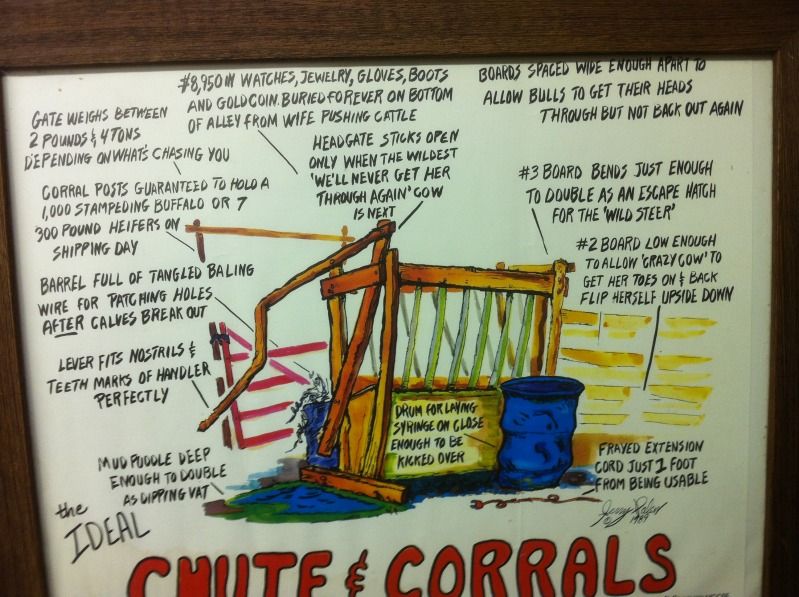 #8,950 IN WATCHES, JEWELRY, GLOVES, BOOTS
AND GOLD COIN BURIED FOREVER ON BOTTOM
OF ALLEY FROM WIFE PUSHING CATTLE
BOARDS SPACED WIDE ENOUGH APART TO
ALLOW BULLS TO GET THEIR HEADS
THROUGH BUT NOT BACK OUT AGAIN
GATE WEIGHS BETWEEN
2 POUNDS & 4 TONS
DEPENDING ON WHAT'S CHASING YOU
HEADGATE STICKS OPEN
ONLY WHEN THE WILDEST
'WE'LL NEVER GET HER
THROUGH AGAIN' COW
IS NEXT
CORRAL POSTS GUARANTEED TO HOLD A
1,000 STAMPEDING BUFFALO OR 7
300 POUND HEIFERS ON
SHIPPING DAY
#3 BOARD BENDS JUST ENOUGH
TO DOUBLE AS AN ESCAPE HATCH
FOR THE 'WILD STEER'
#2 BOARD LOW ENOUGH
TO ALLOW 'CRAZY COW' TO
GET HER TOES ON & BACK
FLIP HERSELF UPSIDE DOWN
BARREL FULL OF TANGLED BALING
WIRE FOR PATCHING HOLES
AFTER CALVES BREAK OUT
LEVER FITS NOSTRILS &
TEETH MARKS OF HANDLER
PERFECTLY
DRUM FOR LAYING
SYRINGE ON CLOSE
ENOUGH TO BE
KICKED OVER
MUD PUDDLE DEEP
ENOUGH TO DOUBLE
AS DIPPING VAT
FRAYED EXTENSION
CORD JUST 1 FOOT
FROM BEING USABLE
Jerry
© 1989
the
IDEAL
CHUTE & CORRALS